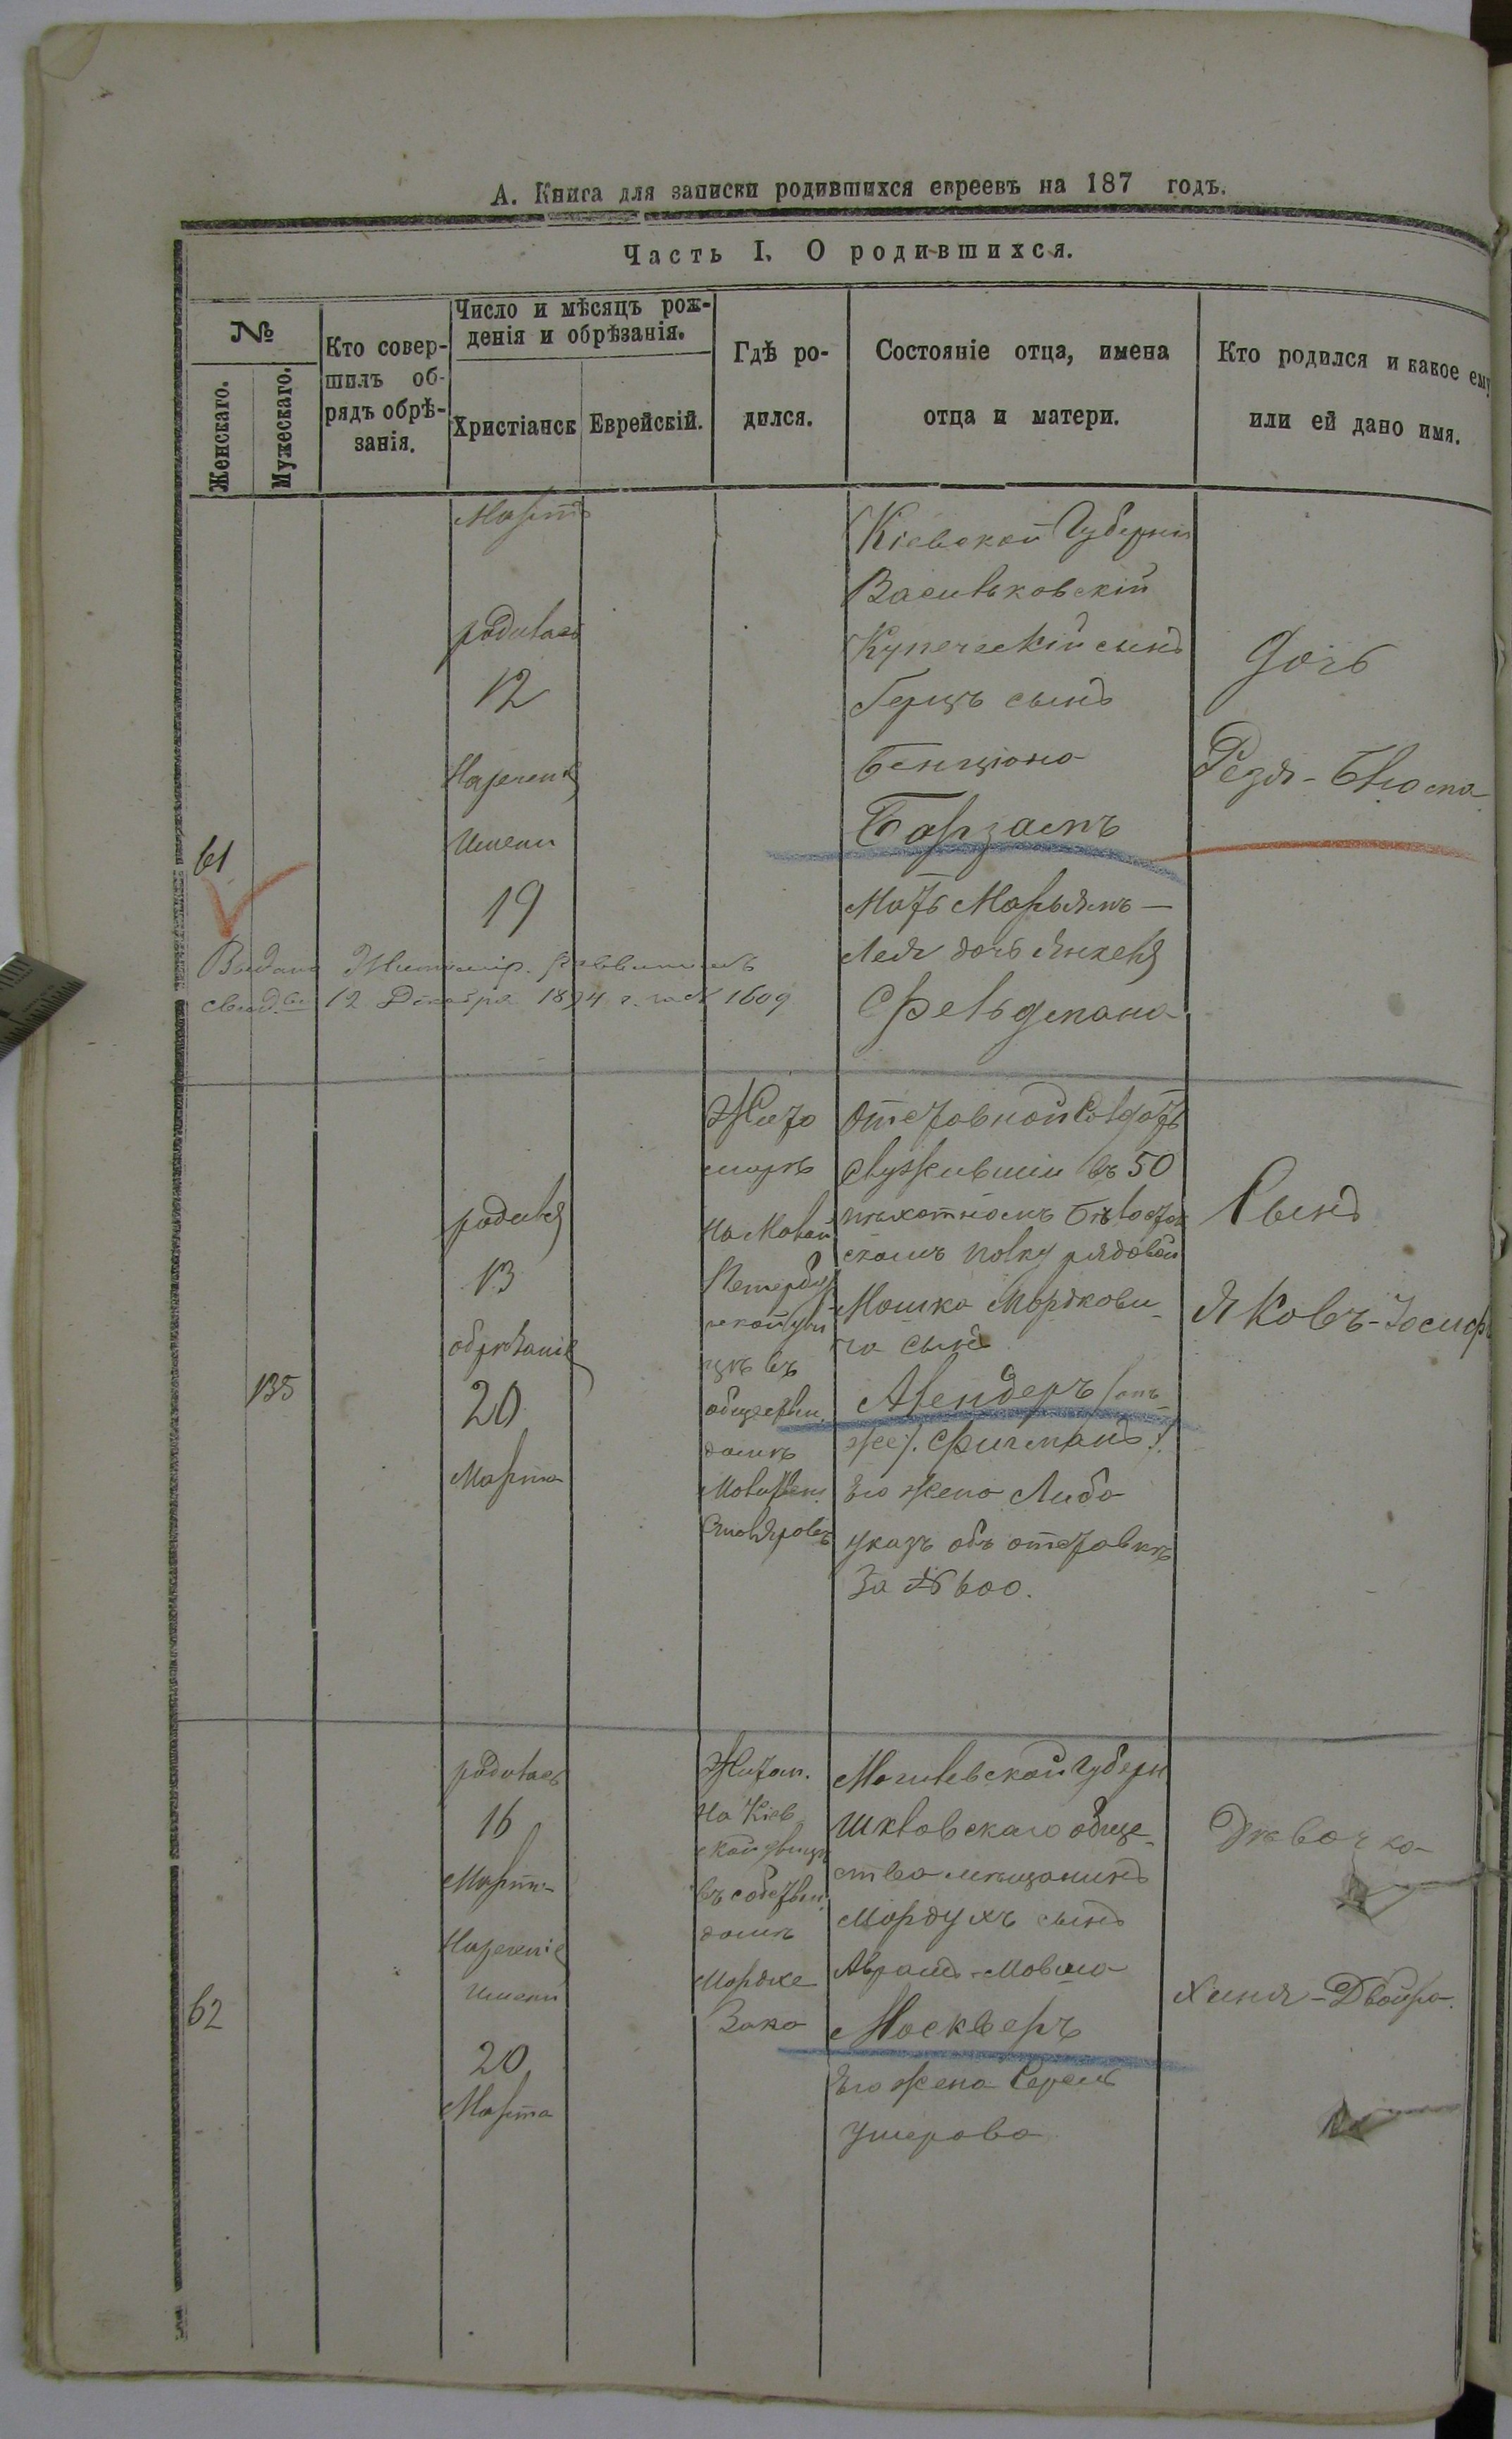 А. Книга для записки родившихся евреевъ на 187 годъ.
Часть I. О родившихся.
№
Женскаго.
Мужескаго.
Кто совер-
шилъ об-
рядъ обрѣ-
занія.
Число и мѣсяцъ рож-
денія и обрѣзанія.
Христіанск
Еврейскій.
Гдѣ ро-
дился.
Состояніе отца, имена
отца и матери.
Кто родился и какое ему
или ей дано имя.
61
Мартъ
родилась
12
Нареченіе
имени
19
Кіевской Губерніи
Васильковскій
Купеческій сынъ
Герцъ сынъ
Бенціона
Барзамъ
Мать Марьямъ -
Лея дочь Янкеля
Фельдмана
Дочь
Рейзя - Блюма
Выдано Житомір. Раввиномъ
свид.во 12 Декабря 1894 г. за № 1609
135
родился
13
обрѣзаніе
20
Марта
Жито
мирѣ
на Малой
Петербур
ской ули
цѣ въ
обществен.
домѣ
Столяровъ
Отставной Солдатъ
служившій въ 50
пѣхотномъ Бѣлосток
скомъ полку рядовой
Мошко Мордкови-
ча сынъ
Авендеръ (онъ-
же). Фичманъ).
Его жена Либа
указъ объ отставкѣ
За № 600.
Сынъ
Яковъ-Іосифъ
62
родилась
16
Марта
Нареченіе
имени
20
Марта
Житом.
на Кіев
ской улицѣ
въ собствен.
домѣ
Мордке
Зака
Могилевской Губерн
Шкловскаго обще-
ства мѣщанинъ
Мордухъ сынъ
Авраамъ-Мовша
Москверъ
Его жена Серель
Ушерова
Дѣвочка
Хиня-Двойра.